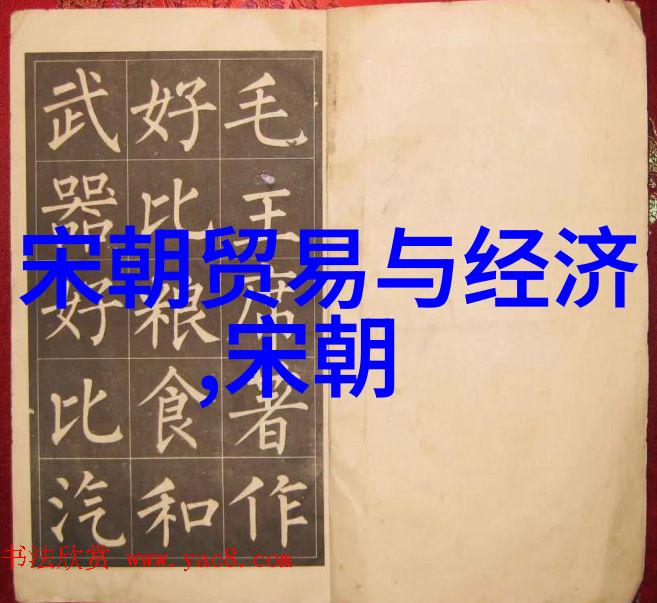 毛主席著作
好比粮食和
武器好比汽
宋朝贸易与经济
,宋朝
书法欣赏 www.yac8.com